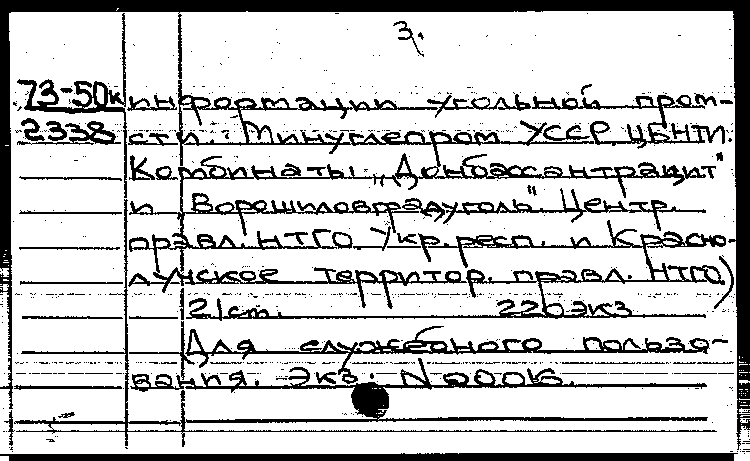 3.
73-50к информации угольной пром-
2338 сти: Минуглепром УССР. ЦБНТИ.
Комбинаты „Донбассантрацит"
и „Ворошиловградуголь". Центр.
правл. НТГО Укр. респ. и Красно-
лучское территор. правл. НТГО)
21 ст. 220 экз
Для служебного пользо-
вания. Экз. N